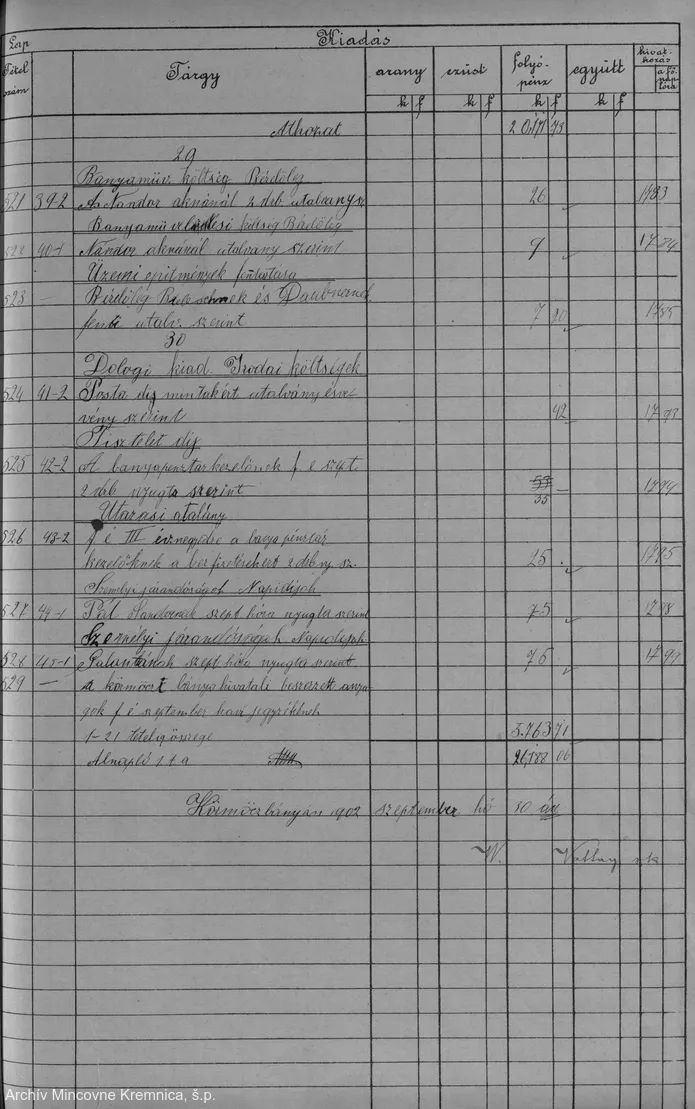 Lap Kiadás
Tétel szám Tárgy arany ezüst folyó-pénz együtt hivat-kozás a fő naplóra
k f k f k f k f
Áthozat
29
Bányamüv. költség Bérdöleg
521 39-2 A Nándor aknánál 2 drb utalvány sz 26 1783
költség Bérdöleg
522 40-1 Nándor aknánál utalvány szerint 9 1784
Üzemi épitmények fentartása
523 — Bérdöleg és Daubnernek
fenti utalv. szerint 7 20 1785
30
Dologi kiad. Irodai költségek
524 41-2 Posta dij mintákért utalvány és ve
vény szerint 42 1793
Tisztelet dij
525 42-2 A bányapénztárkezelőnek f é szept.
2 drb nyugta szerint 35 — 1794
Utazási átalány
526 43-2 f é III évnegyedre a bányapénztár
kezelőknek a bérfizetésekért 2 drb ny. sz. 25 1795
Személyi járandóságok Napidijak
527 44-1 Pál Sándornak szept. hóra nyugta szerint 75 1798
Személyi járandóságok Napidijak
528 45-1 szept hóra nyugta szerint 75 1799
529 — A körmöczi bányahivatali beszerzett anya
gok f é szeptember havi jegyzékének
1-21 tétel összege 5.763 71
Alnapló 26,188 06
Körmöczbányán 1902 szeptember hó 30 án